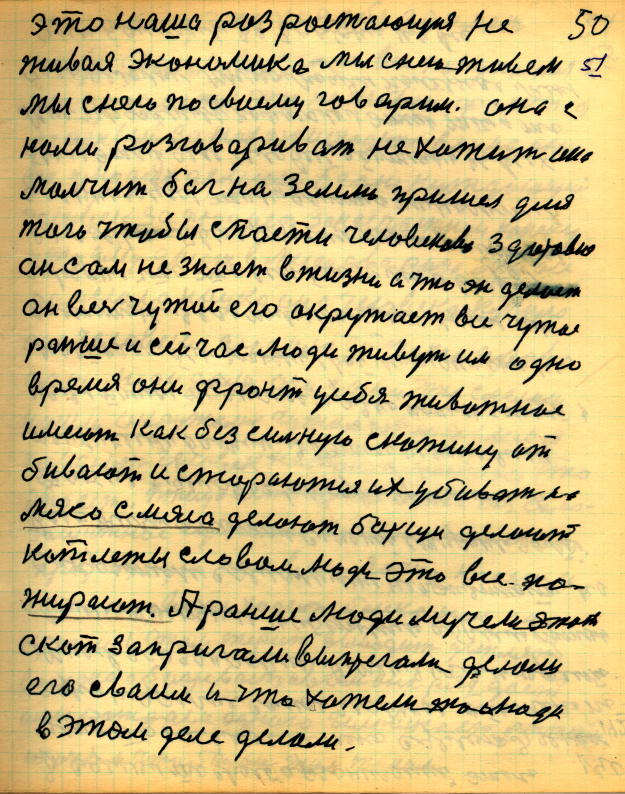 это наша розростающия не 50
живая экономика мы снею живем 51
мы снею по своему говарим. она с
нами розговариват не хотит она
молчит бог на Землю пришел для
того чтобы спасти человеково Здоровю
ан сам не знает в жизни а что он делает
он все чужой его окружает все чужое
раньше и сейчас люди живут им одно
время они фронт уебя животное
имеют как без силную скотину от
бивают и стораются их убиват на
мясо с мяса делают борщи делоют
котлеты словом люди это все по-
жирают. А раньше люди мучели этот
скот запригали выпрегали делоли
его сваим и что хотели то люди
в этом деле делоли.